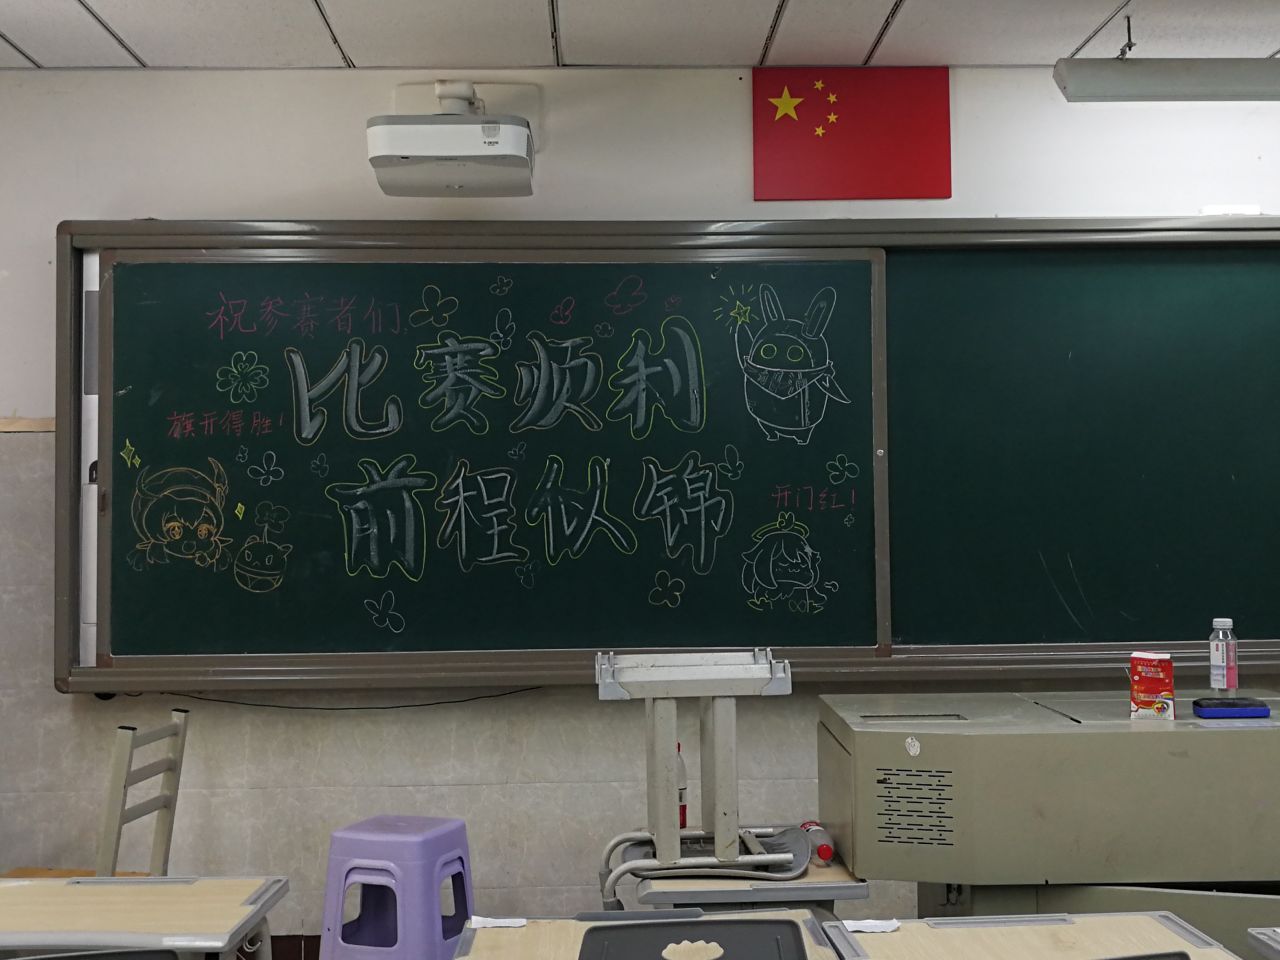 祝参赛者们
比赛顺利
旗开得胜！
前程似锦
开门红！